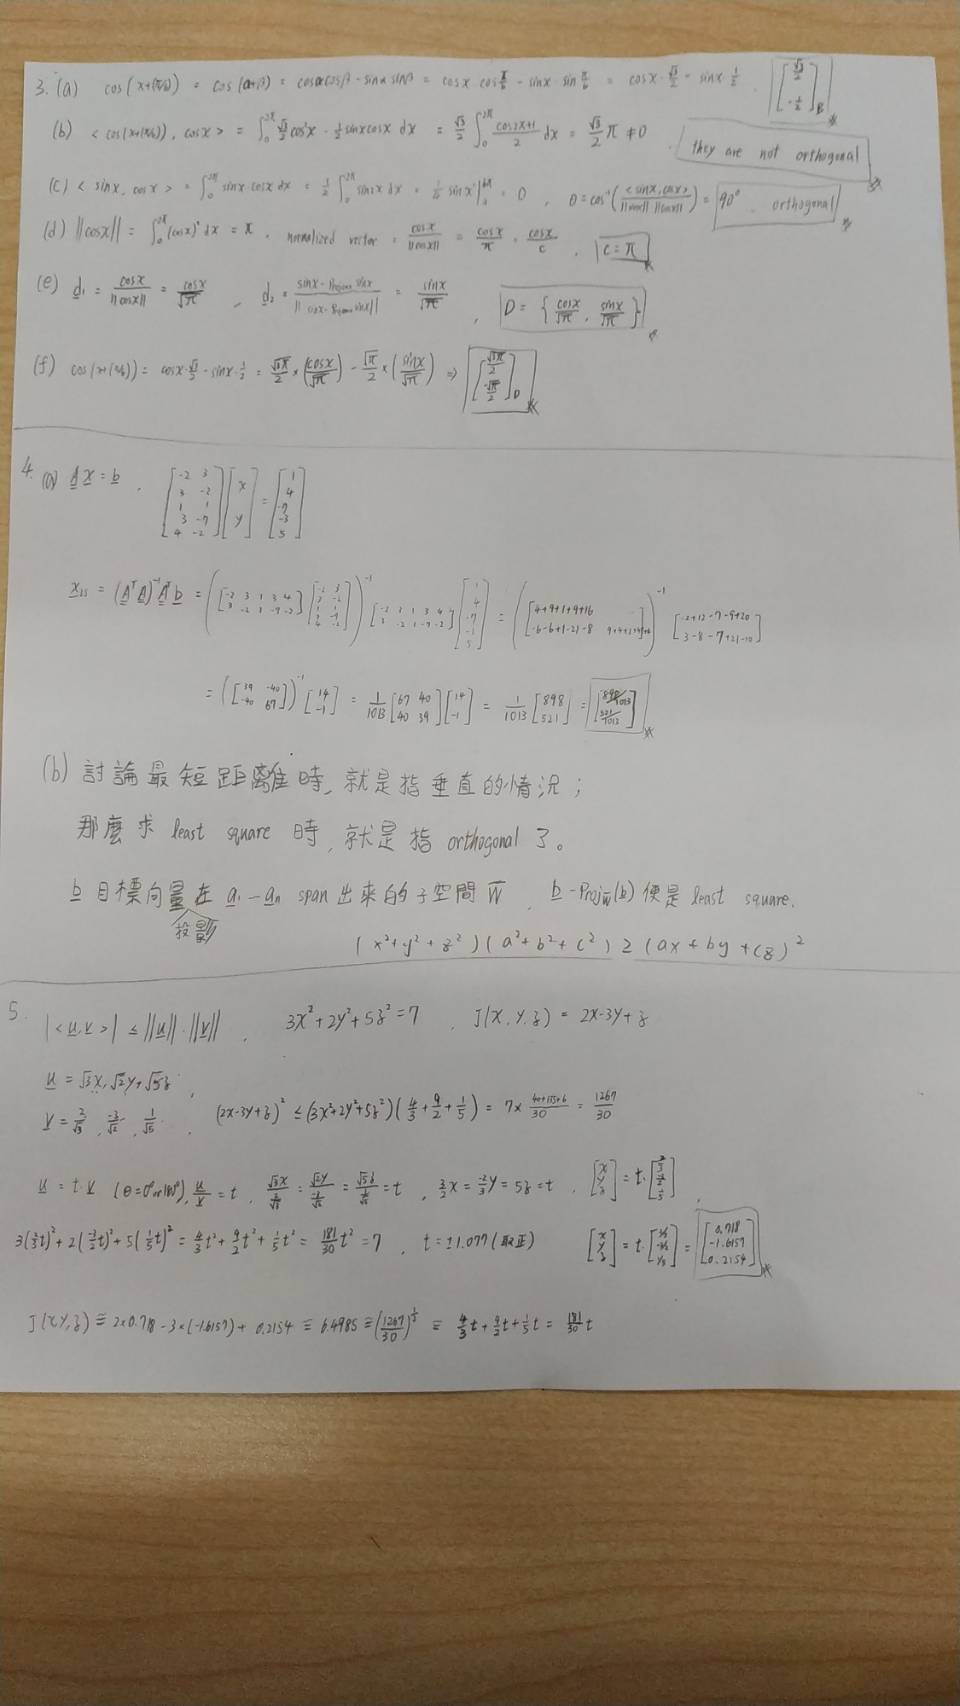 3. (a) cos(x+(π/6)) = cos(α+β) = cosαcosβ - sinα sinβ = cosx cos π/6 - sinx·sin π/6 = cosx·√3/2 - sinx·1/2 . [√3/2, -1/2]B
(b) <cos(x+(π/6)), cosx> = ∫₀²π √3/2 cos²x - 1/2 sinxcosx dx = √3/2 ∫₀²π (cos2x+1)/2 dx = √3/2 π ≠ 0 . they are not orthogonal
(c) <sinx, cosx> = ∫₀²π sinx cosx dx = 1/2 ∫₀²π sin2x dx = 0 , θ = cos⁻¹(<sinx, cosx>/||sinx|| ||cosx||) = 90° . orthogonal
(d) ||cosx|| = ∫₀²π (cosx)² dx = π . normalized vector = cosx/||cosx|| = cosx/π = cosx/c . c = π
(e) d₁ = cosx/||cosx|| = cosx/√π , d₂ = = sinx/√π , D = {cosx/√π , sinx/√π}
(f) cos(x+(π/6)) = cosx·√3/2 - sinx·1/2 = √3π/2 × (cosx/√π) - √π/2 × (sinx/√π) ⇒ [√3π/2, -√π/2]D
4. (a) A x = b . [-2 3; 3 -2; 1 1; 3 -7; 4 -2] [x; y] = [1; 4; -7; -3; 5]
x_LS = (AᵀA)⁻¹Aᵀb = ([-2 3 1 3 4; 3 -2 1 -7 -2] [-2 3; 3 -2; 1 1; 3 -7; 4 -2])⁻¹ [-2 3 1 3 4; 3 -2 1 -7 -2] = ([4+9+1+9+16 ; -6-6+1-21-8 ])⁻¹ [-2+12-7-9+20; 3-8-7+21-10]
= ([39 -40; -40 67])⁻¹ [14; -1] = 1/1013 [67 40; 40 39] [14; -1] = 1/1013 [898; 521] = [898/1013; 521/1013]
(b) 討論最短距離時, 就是指垂直的情況;
那麼求 least square 時, 就是指 orthogonal 了。
b 目標向量投影在 a₁ - aₙ span 出來的子空間 W , b - Proj_W(b) 便是 least square.
(x²+y²+z²)(a²+b²+c²) ≥ (ax+by+cz)²
5. |<u,v>| ≤ ||u||·||v|| , 3x²+2y²+5z²=7 , J(x,y,z) = 2x-3y+z
u = √3x, √2y, √5z ,
v = 2/√3, -3/√2, 1/√5 , (2x-3y+z)² ≤ (3x²+2y²+5z²)(4/3+9/2+1/5) = 7× (40+135+6)/30 = 1267/30
u = t·v (θ=0° or 180°), u/v = t , √3x/(2/√3) = √2y/(-3/√2) = √5z/(1/√5) = t , 3/2x = -2/3y = 5z = t , [x; y; z] = t·[2/3; -3/2; 1/5] ,
3(2/3t)²+2(-3/2t)²+5(1/5t)² = 4/3t²+9/2t²+1/5t² = 181/30t² = 7 , t = ±1.077 (取正) [x; y; z] = t·[2/3; -3/2; 1/5] = [0.718; -1.6157; 0.2154]
J(x,y,z) ≅ 2×0.718-3×(-1.6157)+0.2154 ≅ 6.4985 ≅ (1267/30)^½ ≅ 4/3t+9/2t+1/5t = 181/30t